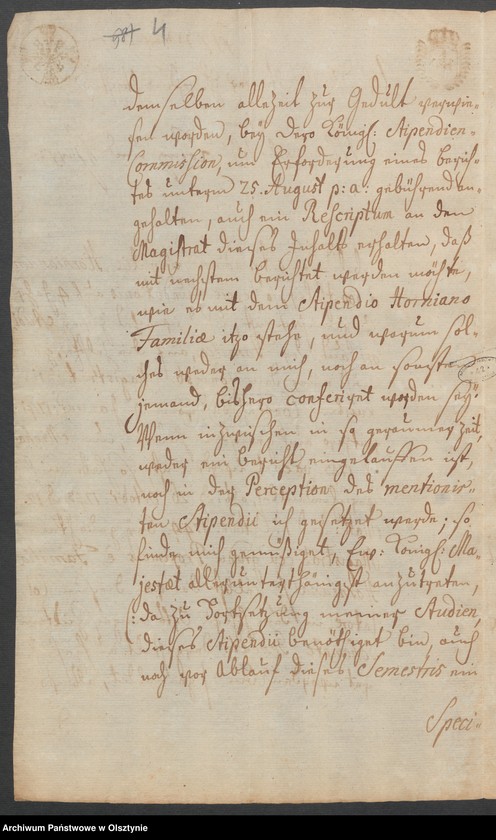 4
demselben allezeit zur Gedult verwie-
sen worden, bey Dero Königl: Stipendien-
Commission, um Erforderung eines Berich-
tes unterm 25. August p: a: gebührend an-
gehalten, auch ein Rescriptum an den
Magistrat dieses Inhalts erhalten, daß
mit nechstem berichtet werden möchte,
wie es mit dem Stipendio Horniano
Familiæ itzo stehe, und warum sol-
ches weder an mich, noch an sonsten
jemand, bishero conferiret worden sey.
Wenn inzwischen in so geraumer Zeit,
weder ein Bericht eingelauffen ist,
noch in der Perception des mentionir-
ten Stipendii ich gesetzet werde; so
finde mich gemüßiget, Ew: Königl: Ma-
jestät allerunterthänigst anzutreten,
da zu Fortsetzung meiner Studien,
dieses Stipendii benöthiget bin, auch
noch vor Ablauf dieses Semestris ein
Speci-
Archiwum Państwowe w Olsztynie